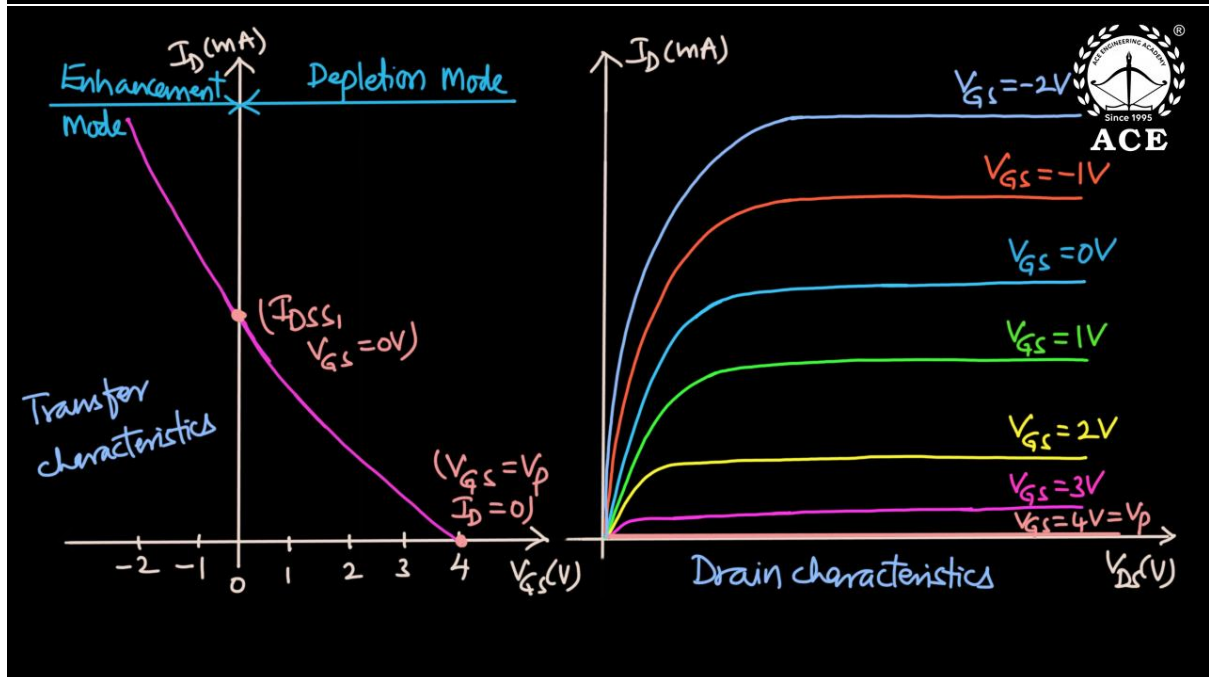 I_D(mA)
Enhancement
Mode
Depletion Mode
(I_DSS,
V_GS=0V)
Transfer
characteristics
(V_GS=V_p
I_D=0)
-2 -1 0 1 2 3 4 V_GS(V)
I_D(mA)
V_GS=-2V
V_GS=-1V
V_GS=0V
V_GS=1V
V_GS=2V
V_GS=3V
V_GS=4V=V_p
Drain characteristics
V_DS(V)
ACE ENGINEERING ACADEMY
®
Since 1995
ACE